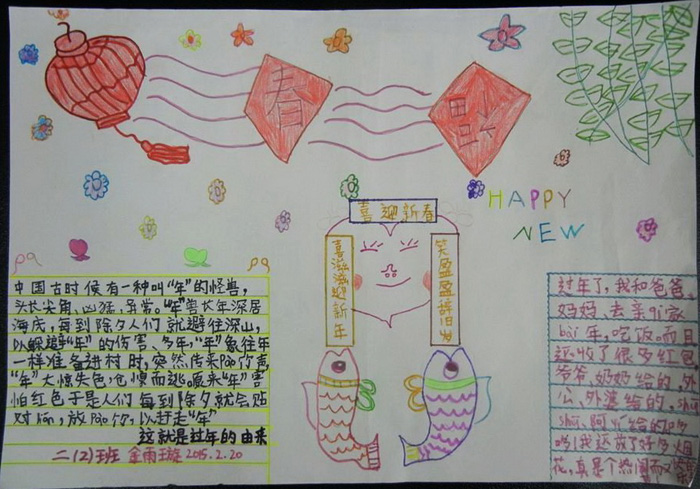 春
福
HAPPY
NEW
喜迎新春
喜滋滋迎新年
笑盈盈辞旧岁
中国古时候有一种叫“年”的怪兽,
头长尖角,凶猛异常。“年”兽长年深居
海底,每到除夕人们就避往深山,
以躲避“年”的伤害。多年,“年”象往年
一样准备进村时,突然传来pào竹声,
“年”大惊失色,仓惶而逃。原来“年”害
怕红色于是人们每到除夕就会贴
对lián,放pào竹,以赶走“年”
这就是过年的由来
二(2)班 金雨璇 2015.2.20
过年了,我和爸爸
妈妈、去亲
bài年,吃饭。而且
还收了很多红包
爷爷、奶奶给的,外
公、外婆给的,shū
shu、阿yí给的
哟!我还放了好多烟
花,真是个